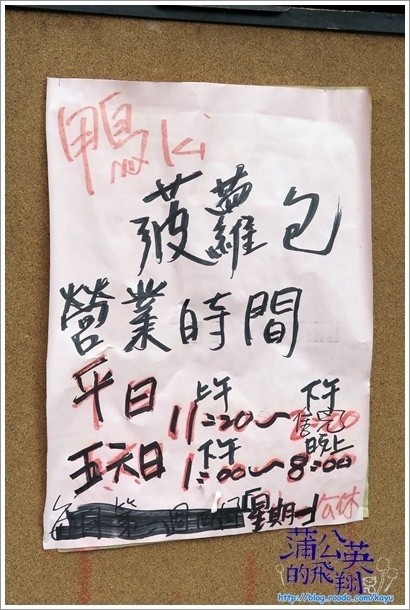 鴨ki
菠蘿包
營業時間
平日 上午11:20~下午
五六日 下午1:00~晚上8:00
星期一公休
蒲公英的飛翔
http://blog.roodo.com/kayu